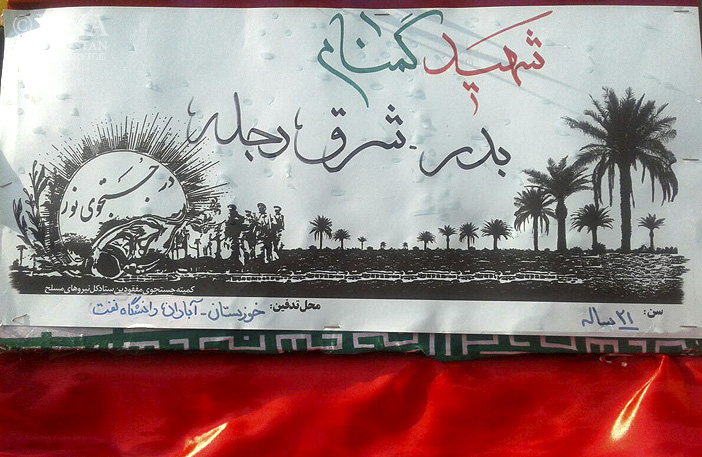 شهید گمنام
بدر - شرق دجله
در جستجوی نور
کمیته جستجوی مفقودین ستاد کل نیروهای مسلح
سن: ۲۱ ساله
محل تدفین: خوزستان - آبادان، دانشگاه نفت